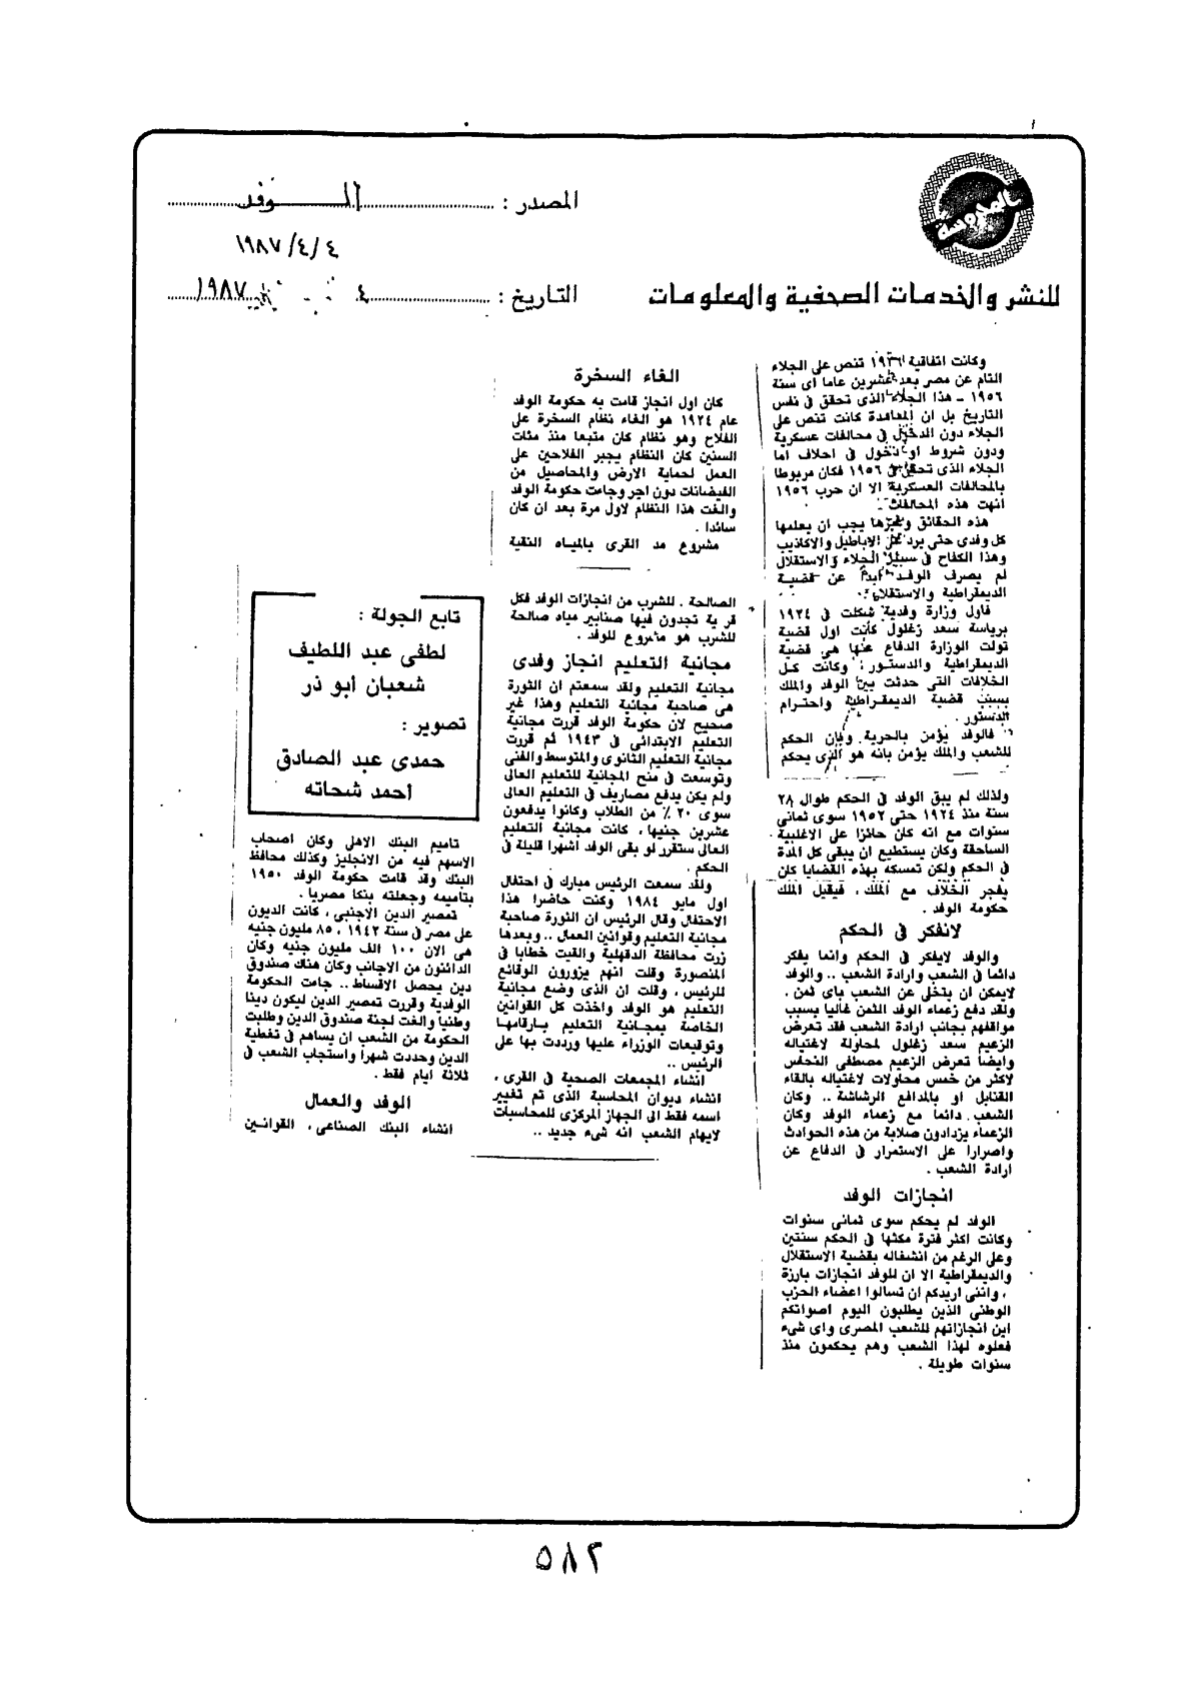 المصدر : الوفد
١٩٨٧/٤/٤
التاريخ : ٤ ١٩٨٧
المحروسة
للنشر والخدمات الصحفية والمعلومات
وكانت اتفاقية ١٩٣٦ تنص على الجلاء
التام عن مصر بعد عشرين عاما اى سنة
١٩٥٦ ـ هذا الجلاء الذى تحقق فى نفس
التاريخ بل ان المعاهدة كانت تنص على
الجلاء دون الدخول فى محالفات عسكرية
ودون شروط او دخول فى احلاف اما
الجلاء الذى تحقق فى ١٩٥٦ فكان مربوطا
بالمحالفات العسكرية الا ان حرب ١٩٥٦
أنهت هذه المحالفات .
هذه الحقائق وغيرها يجب ان يعلمها
كل وفدى حتى يرد على الاباطيل والاكاذيب
وهذا الكفاح فى سبيل الجلاء والاستقلال
لم يصرف الوفد ابدا عن قضية
الديمقراطية والاستقلال .
فاول وزارة وفدية شكلت فى ١٩٢٤
برياسة سعد زغلول كانت اول قضية
تولت الوزارة الدفاع عنها هى قضية
الديمقراطية والدستور ، وكانت كل
الخلافات التى حدثت بين الوفد والملك
بسبب قضية الديمقراطية واحترام
الدستور .
فالوفد يؤمن بالحرية وبان الحكم
للشعب والملك يؤمن بانه هو الذى يحكم
ولذلك لم يبق الوفد فى الحكم طوال ٢٨
سنة منذ ١٩٢٤ حتى ١٩٥٢ سوى ثمانى
سنوات مع انه كان حائزا على الاغلبية
الساحقة وكان يستطيع ان يبقى كل المدة
فى الحكم ولكن تمسكه بهذه القضايا كان
يفجر الخلاف مع الملك ، فيقيل الملك
حكومة الوفد .
لانفكر فى الحكم
والوفد لايفكر فى الحكم وانما يفكر
دائما فى الشعب وارادة الشعب .. والوفد
لايمكن ان يتخلى عن الشعب باى ثمن .
ولقد دفع زعماء الوفد الثمن غاليا بسبب
مواقفهم بجانب ارادة الشعب فقد تعرض
الزعيم سعد زغلول لمحاولة لاغتياله
وايضا تعرض الزعيم مصطفى النحاس
لاكثر من خمس محاولات لاغتياله بالقاء
القنابل او بالمدافع الرشاشة .. وكان
الشعب دائما مع زعماء الوفد وكان
الزعماء يزدادون صلابة من هذه الحوادث
واصرارا على الاستمرار فى الدفاع عن
ارادة الشعب .
انجازات الوفد
الوفد لم يحكم سوى ثمانى سنوات
وكانت اكثر فترة مكثها فى الحكم سنتين
وعلى الرغم من انشغاله بقضية الاستقلال
والديمقراطية الا ان للوفد انجازات بارزة
، واننى اريدكم ان تسالوا اعضاء الحزب
الوطنى الذين يطلبون اليوم اصواتكم
اين انجازاتهم للشعب المصرى واى شىء
فعلوه لهذا الشعب وهم يحكمون منذ
سنوات طويلة .
الغاء السخرة
كان اول انجاز قامت به حكومة الوفد
عام ١٩٢٤ هو الغاء نظام السخرة على
الفلاح وهو نظام كان متبعا منذ مئات
السنين كان النظام يجبر الفلاحين على
العمل لحماية الارض والمحاصيل من
الفيضانات دون اجر وجاءت حكومة الوفد
والغت هذا النظام لاول مرة بعد ان كان
سائدا .
مشروع مد القرى بالمياه النقية
الصالحة . للشرب من انجازات الوفد فكل
قرية تجدون فيها صنابير مياه صالحة
للشرب هو مشروع للوفد .
مجانية التعليم انجاز وفدى
مجانية التعليم ولقد سمعتم ان الثورة
هى صاحبة مجانية التعليم وهذا غير
صحيح لان حكومة الوفد قررت مجانية
التعليم الابتدائى فى ١٩٤٣ ثم قررت
مجانية التعليم الثانوى والمتوسط والفنى
وتوسعت فى منح المجانية للتعليم العالى
ولم يكن يدفع مصاريف فى التعليم العالى
سوى ٢٠ ٪ من الطلاب وكانوا يدفعون
عشرين جنيها ، كانت مجانية التعليم
العالى ستقرر لو بقى الوفد أشهرا قليلة فى
الحكم .
ولقد سمعت الرئيس مبارك فى احتفال
اول مايو ١٩٨٤ وكنت حاضرا هذا
الاحتفال وقال الرئيس ان الثورة صاحبة
مجانية التعليم وقوانين العمال .. وبعدها
زرت محافظة الدقهلية والقيت خطابا فى
المنصورة وقلت انهم يزورون الوقائع
للرئيس ، وقلت ان الذى وضع مجانية
التعليم هو الوفد واخذت كل القوانين
الخاصة بمجانية التعليم بارقامها
وتوقيعات الوزراء عليها ورددت بها على
الرئيس ..
انشاء المجمعات الصحية فى القرى ،
انشاء ديوان المحاسبة الذى تم تغيير
اسمه فقط الى الجهاز المركزى للمحاسبات
لايهام الشعب انه شىء جديد ..
تابع الجولة :
لطفى عبد اللطيف
شعبان ابو ذر
تصوير :
حمدى عبد الصادق
أحمد شحاته
تاميم البنك الاهلى وكان اصحاب
الاسهم فيه من الانجليز وكذلك محافظ
البنك وقد قامت حكومة الوفد ١٩٥٠
بتاميمه وجعلته بنكا مصريا .
تمصير الدين الاجنبى ، كانت الديون
على مصر فى سنة ١٩٤٢ ، ٨٥ مليون جنيه
هى الان ١٠٠ الف مليون جنيه وكان
الدائنون من الاجانب وكان هناك صندوق
دين يحصل الاقساط .. جاءت الحكومة
الوفدية وقررت تمصير الدين ليكون دينا
وطنيا والغت لجنة صندوق الدين وطلبت
الحكومة من الشعب ان يساهم فى تغطية
الدين وحددت شهرا واستجاب الشعب فى
ثلاثة ايام فقط .
الوفد والعمال
انشاء البنك الصناعى ، القوانين
٥٨٢